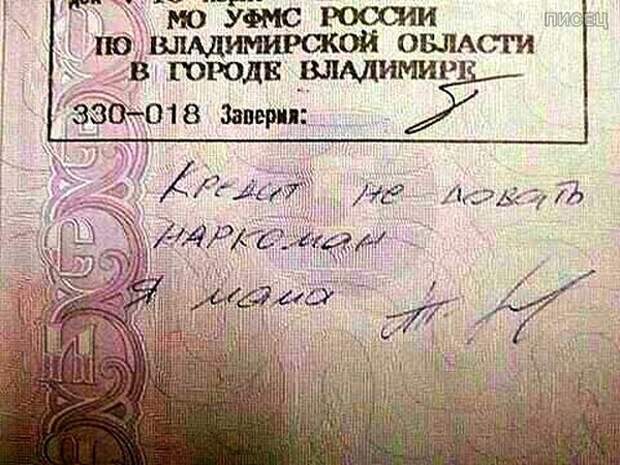 ПИСЕЦ
МО УФМС РОССИИ
ПО ВЛАДИМИРСКОЙ ОБЛАСТИ
В ГОРОДЕ ВЛАДИМИРЕ
330-018 Заверил:
Кредит не довать
наркоман
Я мама